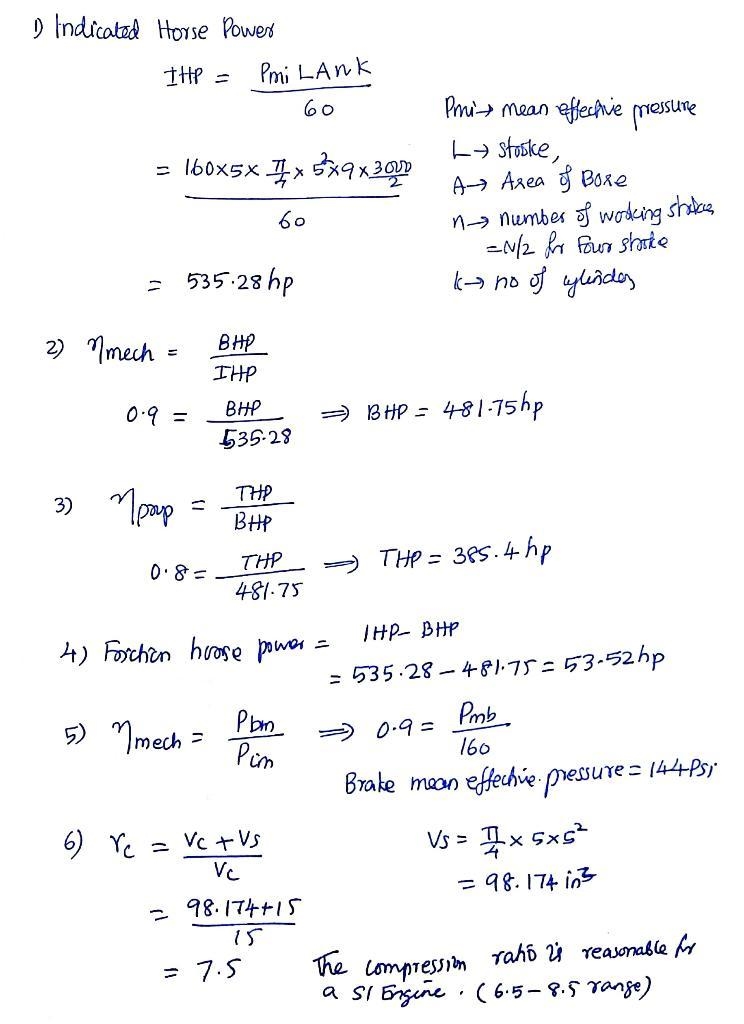 1) Indicated Horse Power
IHP = Pmi LAnK / 60
Pmi → mean effective pressure
L → stroke,
= 160×5× π/4 × 5²×9×3000/2 / 60
A → Area of Bore
n → number of working strokes
= N/2 for Four stroke
= 535.28 hp
k → no of cylinders
2) ηmech = BHP / IHP
0.9 = BHP / 535.28 ⟹ BHP = 481.75 hp
3) ηprop = THP / BHP
0.8 = THP / 481.75 ⟹ THP = 385.4 hp
4) Friction horse power = IHP - BHP
= 535.28 - 481.75 = 53.52 hp
5) ηmech = Pbm / Pim ⟹ 0.9 = Pmb / 160
Brake mean effective pressure = 144 Psi
6) rc = Vc + Vs / Vc
Vs = π/4 × 5×5²
= 98.174 in3
= 98.174+15 / 15
= 7.5
The compression ratio is reasonable for
a SI Engine. (6.5 – 8.5 range)